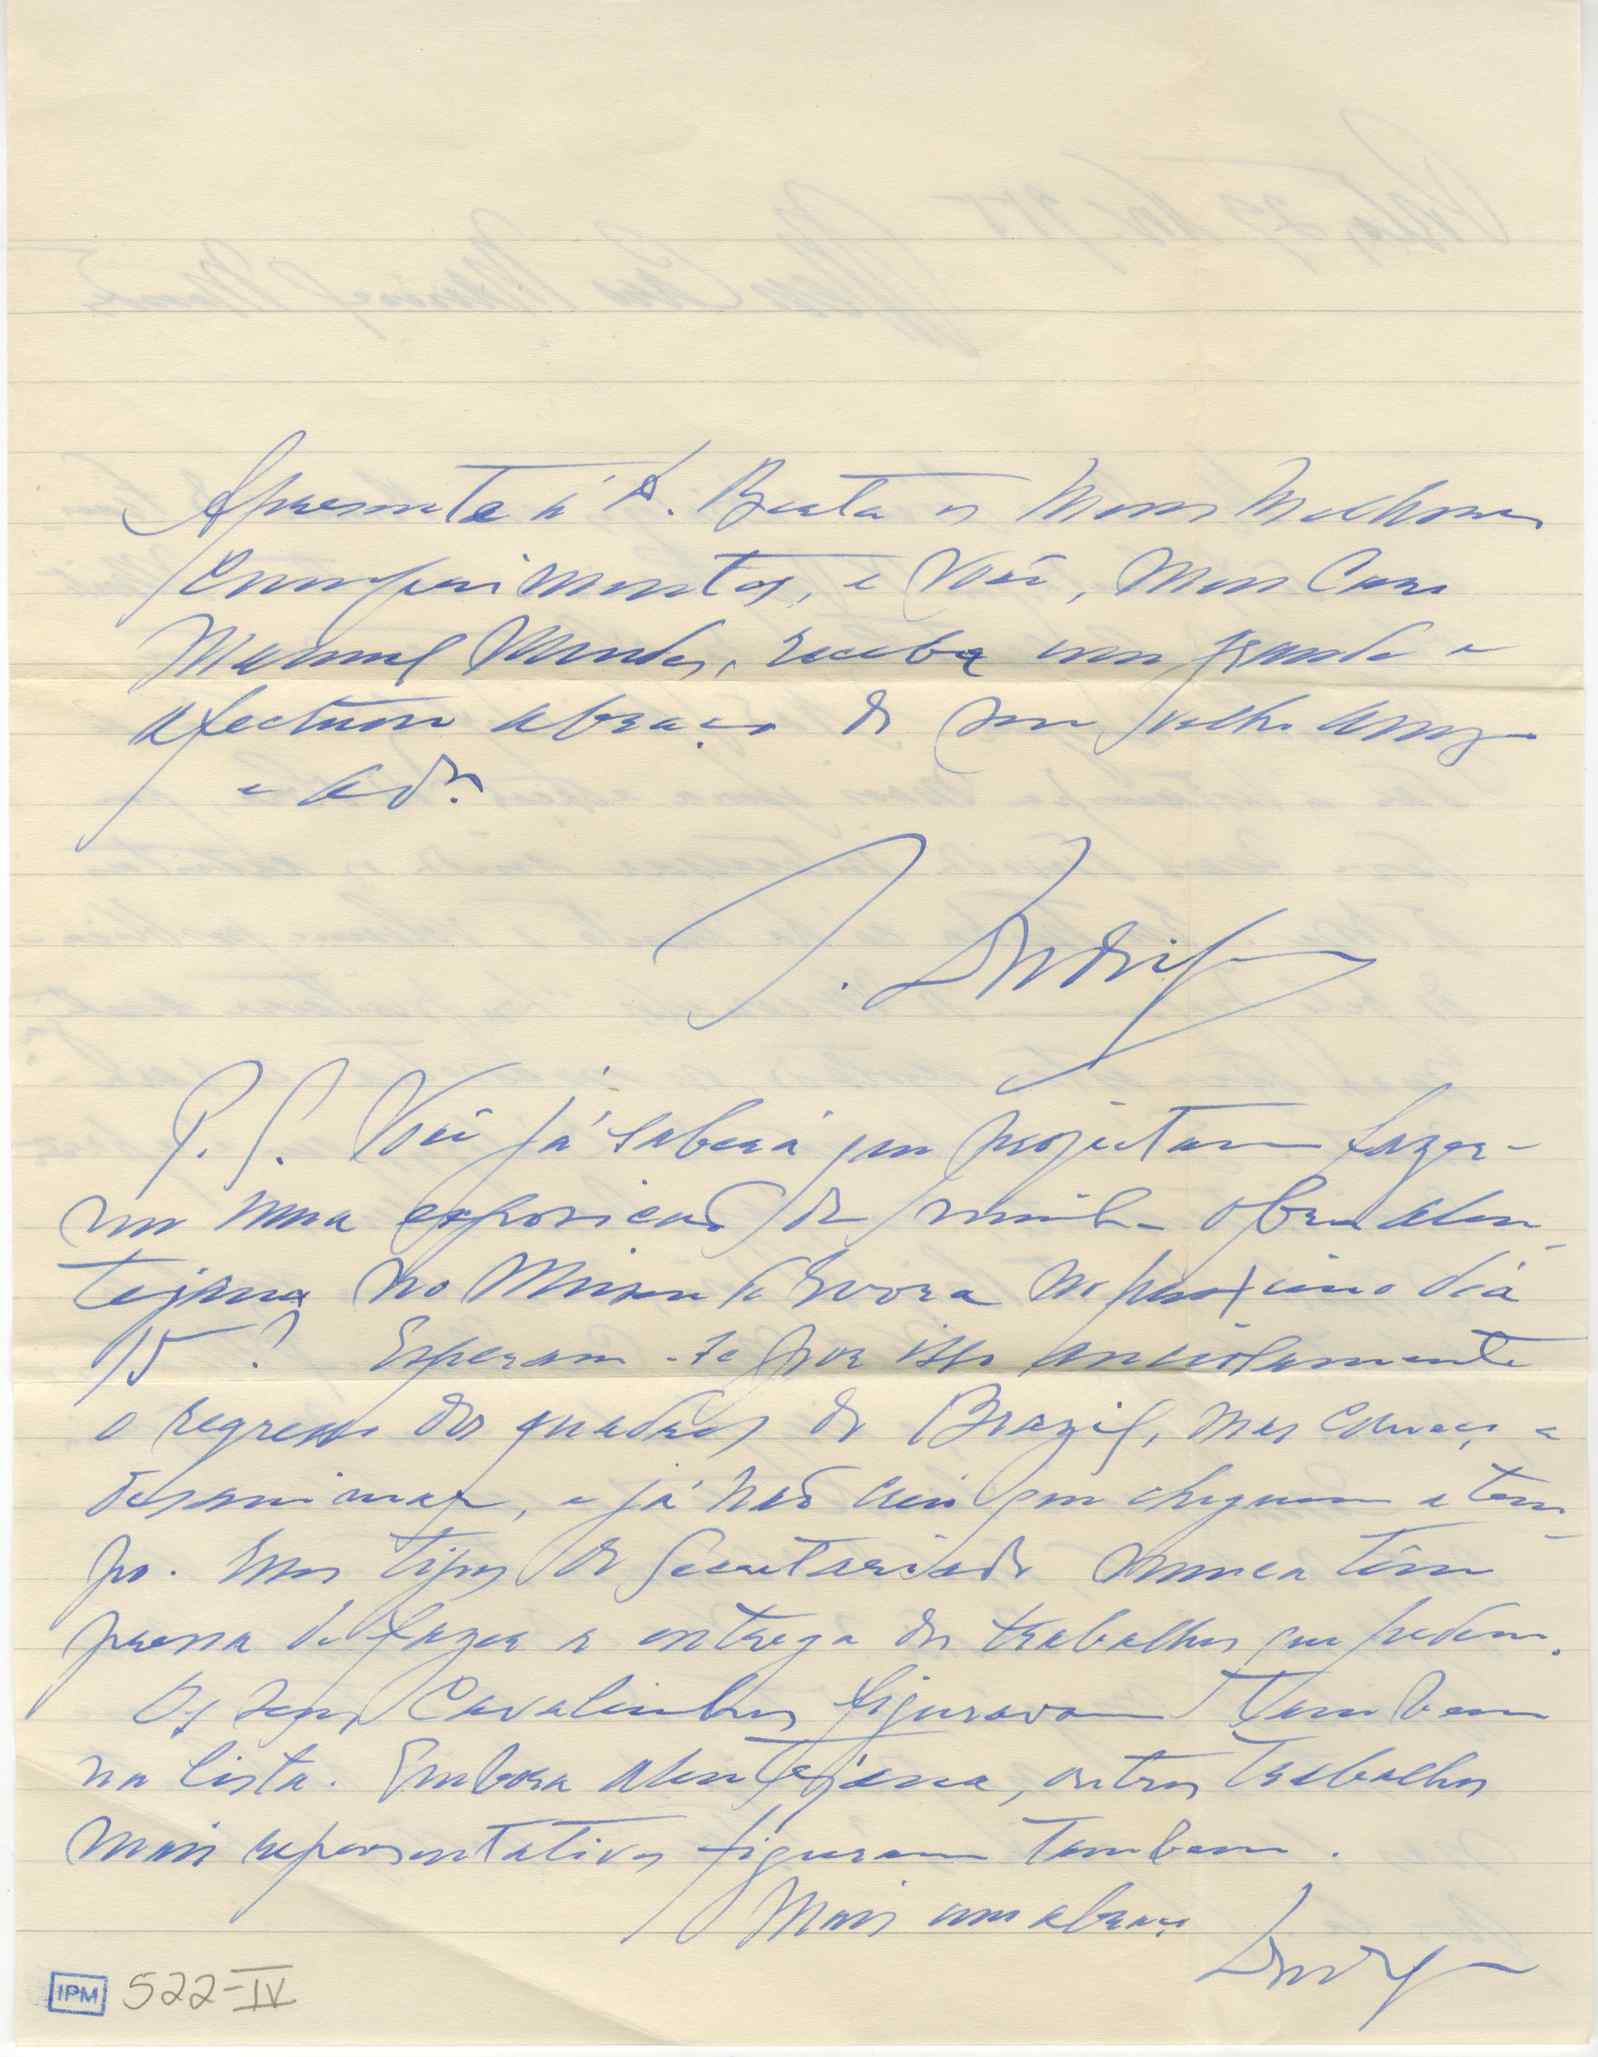 Apresente à D. Berta os meus melhores
cumprimentos, e Você, meu caro
Manuel Mendes, receba um grande e
afectuoso abraço do seu velho amigo
e ad.or
J.
P.S. Você já saberá que projectam fazer-
me uma exposicão da minha obra alen-
tejana no Museu de Evora no proximo dia
15? Esperam-se por isso anciosamente
o regresso dos quadros do Brazil, mas começo a
desanimar, e já não creio que cheguem a tem-
po. Esses tipos do Secretariado nunca têm
pressa de fazer a entrega dos trabalhos que pedem.
Os seus Cavalinhos figuravam Tambem
na lista. Embora alentejana, outros Trabalhos
mais representativos figuram Tambem.
Mais um abraço
IPM 522-IV